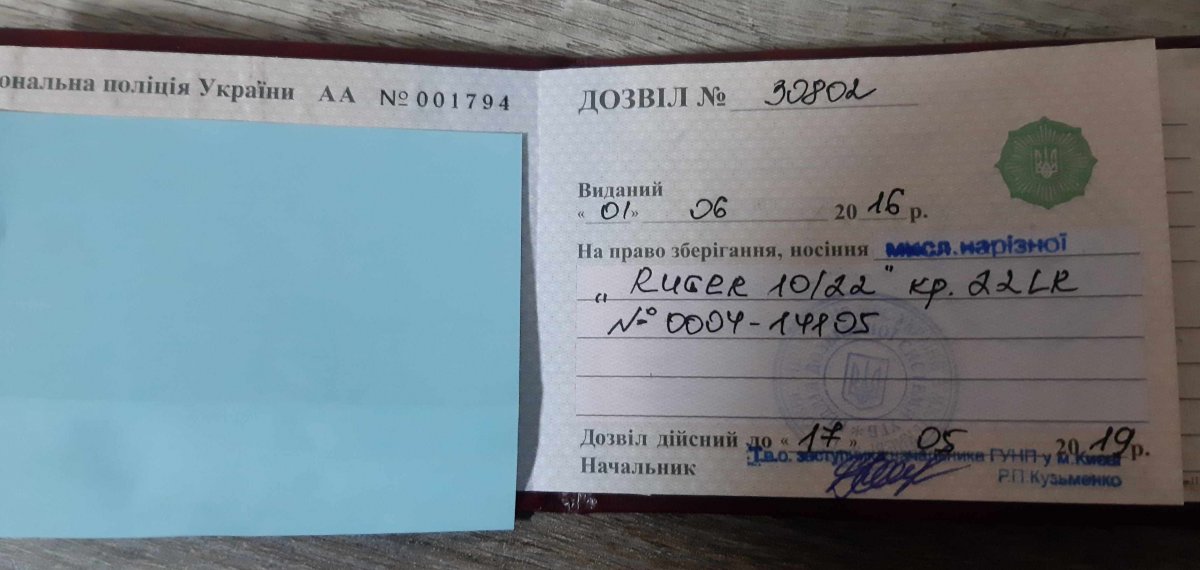 ональна поліція України АА № 001794
ДОЗВІЛ № 30802
Виданий
« 01 » 06 20 16 р.
На право зберігання, носіння мисл. нарізної
„ RUGER 10/22 " кр. 22LR
№ 0004-14105
Дозвіл дійсний до « 17 » 05 20 19 р.
Т.в.о. заступника начальника ГУНП у м.Києві
Начальник
Р.П.Кузьменко